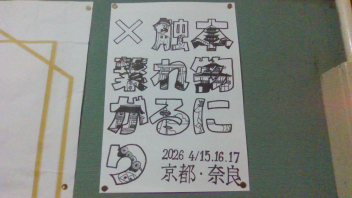 本物に
触れる
×繋がり
2026 4/15.16.17
京都・奈良